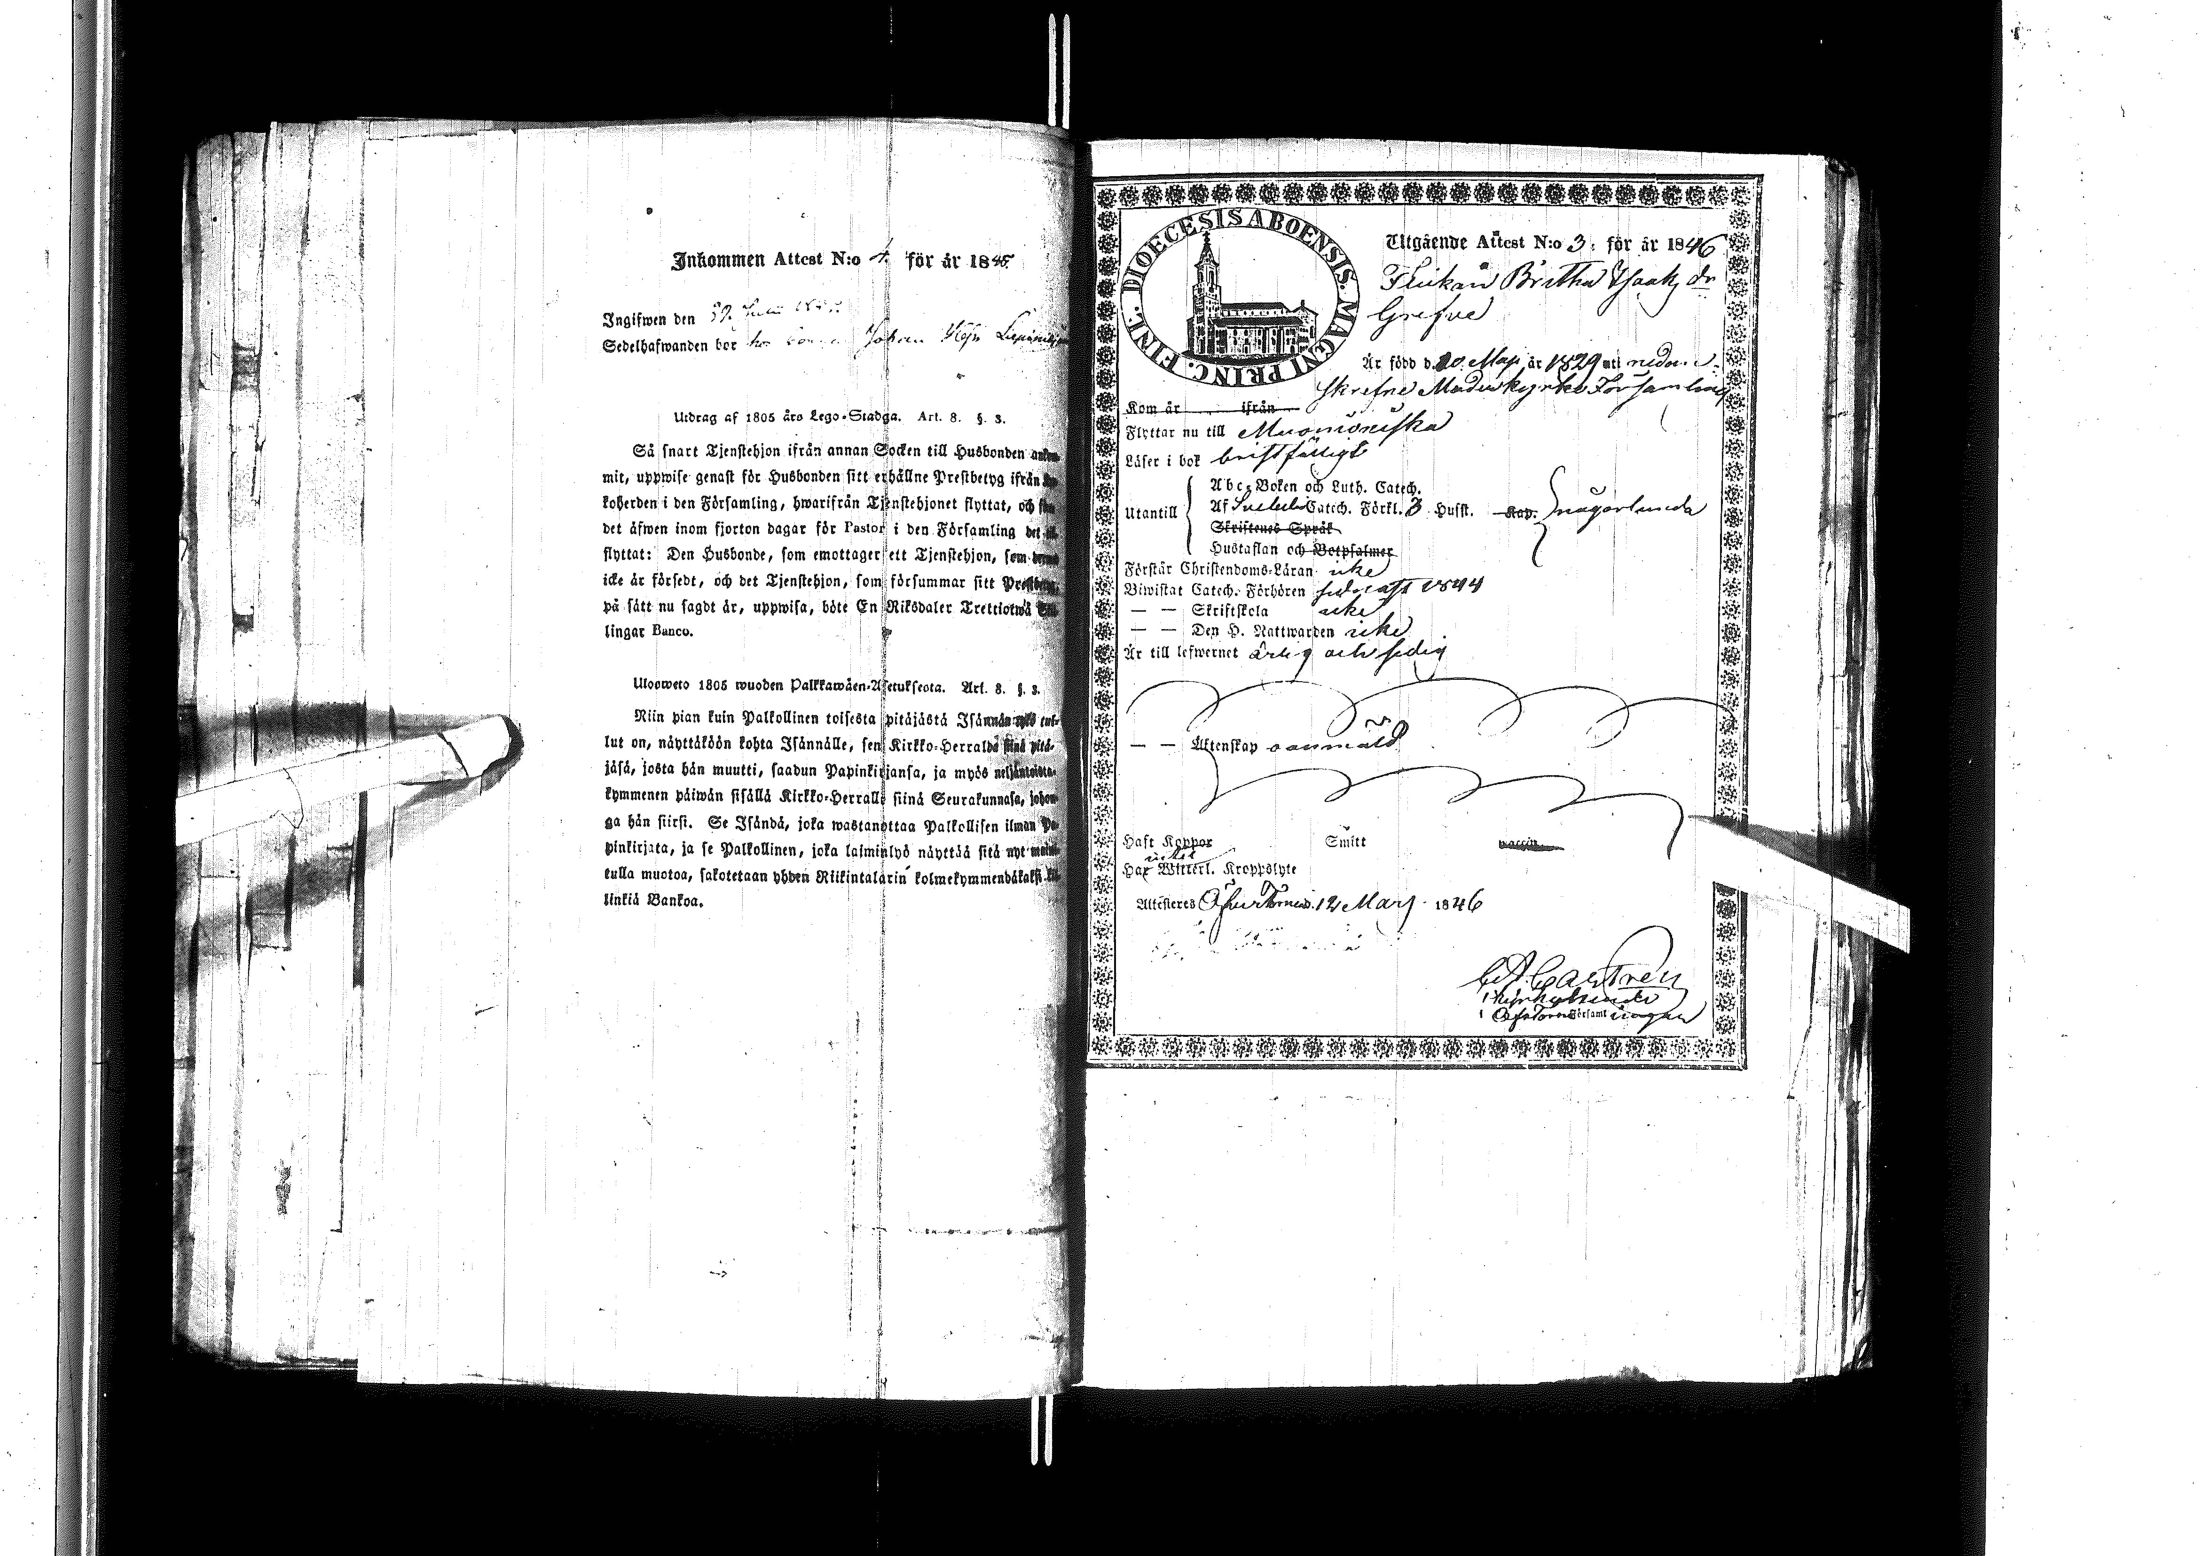 Inkommen Attest N:o 4. för år 1845.
Ingifwen den 29. Junii
Sedelhafwanden bor hos Johan
Utdrag af 1805 års Lego-Stadga. Art. 8. §. 3.
Så snart Tjenstehjon ifrån annan Socken till Husbonden ankom-
mit, uppwise genast för Husbonden sitt erhållne Prestbetyg ifrån Ky-
koherden i den Församling, hwarifrån Tjenstehjonet flyttat, och
det äfwen inom fjorton dagar för Pastor i den Församling det
flyttat: Den Husbonde, som emottager ett Tjenstehjon, som
icke är försedt, och det Tjenstehjon, som försummar sitt Prestbetyg,
på sätt nu sagdt är, uppwisa, böte En Riksdaler Trettiotwå Skil-
lingar Banco.
Uloswето 1805 wuoden Palkkawäen-Asetuksesta. Art. 8. §. 3.
Niin pian kuin Palkollinen toisesta pitäjästä Isännän tykö tul-
lut on, näyttäköön kohta Isännälle, sen Kirkko-Herralda siinä pitä-
jäsä, josta hän muutti, saadun Papinkirjansa, ja myös neljäntoista-
kymmenen päiwän sisällä Kirkko-Herralle siinä Seurakunnasa, johon-
ga hän siirsi. Se Isändä, joka wastanottaa Palkollisen ilman Pa-
pinkirjata, ja se Palkollinen, joka laiminlyö näyttää sitä nyt maini-
tulla muotoa, sakotetaan yhden Riikintalarin kolmekymmendäkaksi kil-
linkiä Bankoa.
DIOECESIS ABOENSIS. MAGNI PRINC. FINL.
Utgående Attest N:o 3. för år 1846
Flickan Britha Isaaks dr
Grefve
Är född d. 20 Maji år 1829 uti nedan-
skrefne Moderkyrko Församling
Kom år ifrån
Flyttar nu till Muonioniska
Läser i bok bristfälligt
Utantill
Abc-Boken och Luth. Catech.
Af Catech. Förkl. 3 Hufst. Kap. någorlunda
Skriftenes Språk
Hustaflan och Botpsalmer
Förstår Christendoms-Läran icke
Biwistat Catech. Förhören sednast 1844
— — Skriftskola icke
— — Den H. Nattwarden icke
Är till lefwernet ärlig och sedig
— — Äktenskap oanmäld
Haft Koppor Smitt vaccin
icke
Har Witterl. Kroppslyte
Attesteres Öfver Torneå. 12 Mars 1846
Castrén
i Församl